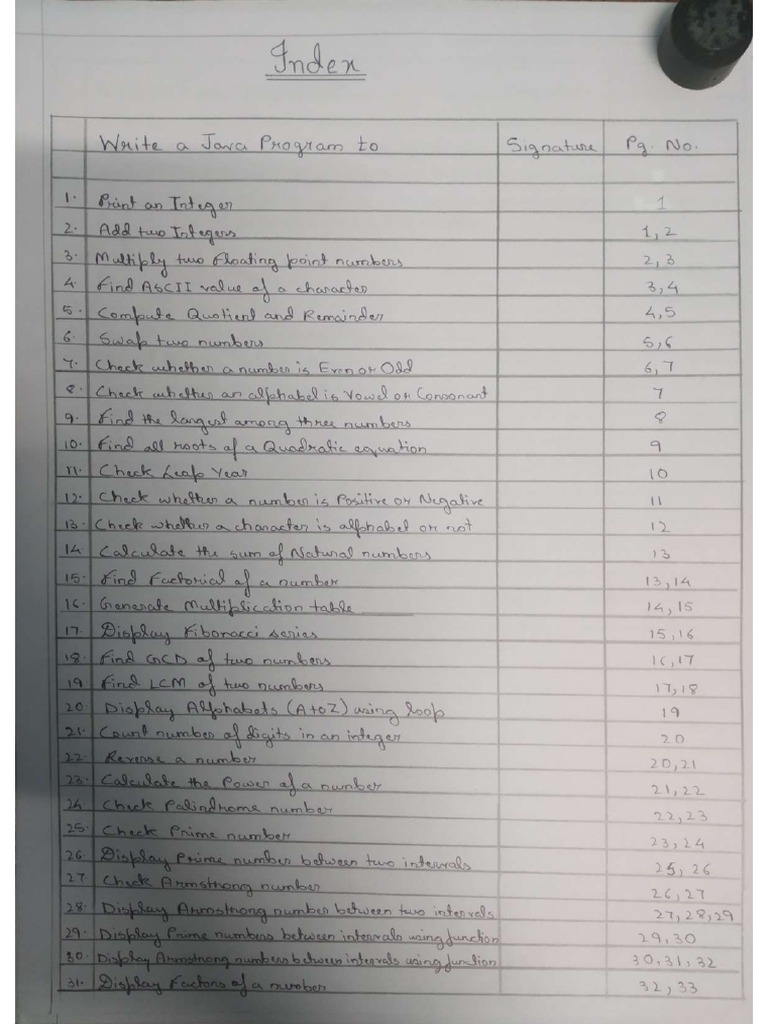 Index
Write a Java Program to Signature Pg. No.
1. Print an Integer 1
2. Add two Integers 1, 2
3. Multiply two Floating point numbers 2, 3
4. Find ASCII value of a character 3, 4
5. Compute Quotient and Remainder 4, 5
6. Swap two numbers 5, 6
7. Check whether a number is Even or Odd 6, 7
8. Check whether an alphabet is Vowel or Consonant 7
9. Find the largest among three numbers 8
10. Find all roots of a Quadratic equation 9
11. Check Leap Year 10
12. Check whether a number is Positive or Negative 11
13. Check whether a character is alphabet or not 12
14. Calculate the sum of Natural numbers 13
15. Find Factorial of a number 13, 14
16. Generate Multiplication table 14, 15
17. Display Fibonacci series 15, 16
18. Find GCD of two numbers 16, 17
19. Find LCM of two numbers 17, 18
20. Display Alphabets (A to Z) using loop 19
21. Count number of digits in an integer 20
22. Reverse a number 20, 21
23. Calculate the Power of a number 21, 22
24. Check Palindrome number 22, 23
25. Check Prime number 23, 24
26. Display Prime number between two intervals 25, 26
27. Check Armstrong number 26, 27
28. Display Armstrong number between two intervals 27, 28, 29
29. Display Prime numbers between intervals using function 29, 30
30. Display Armstrong numbers between intervals using function 30, 31, 32
31. Display Factors of a number 32, 33